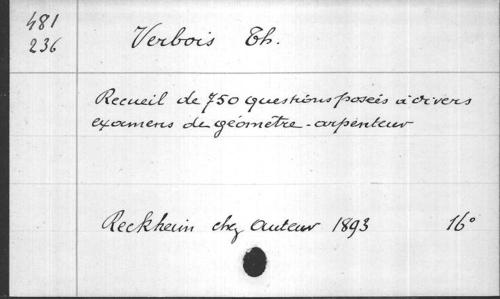 481
236
Verbois Th.
Recueil de 750 questions posées à divers
examens de géomètre-arpenteur
Reckheim chez auteur 1893 16°